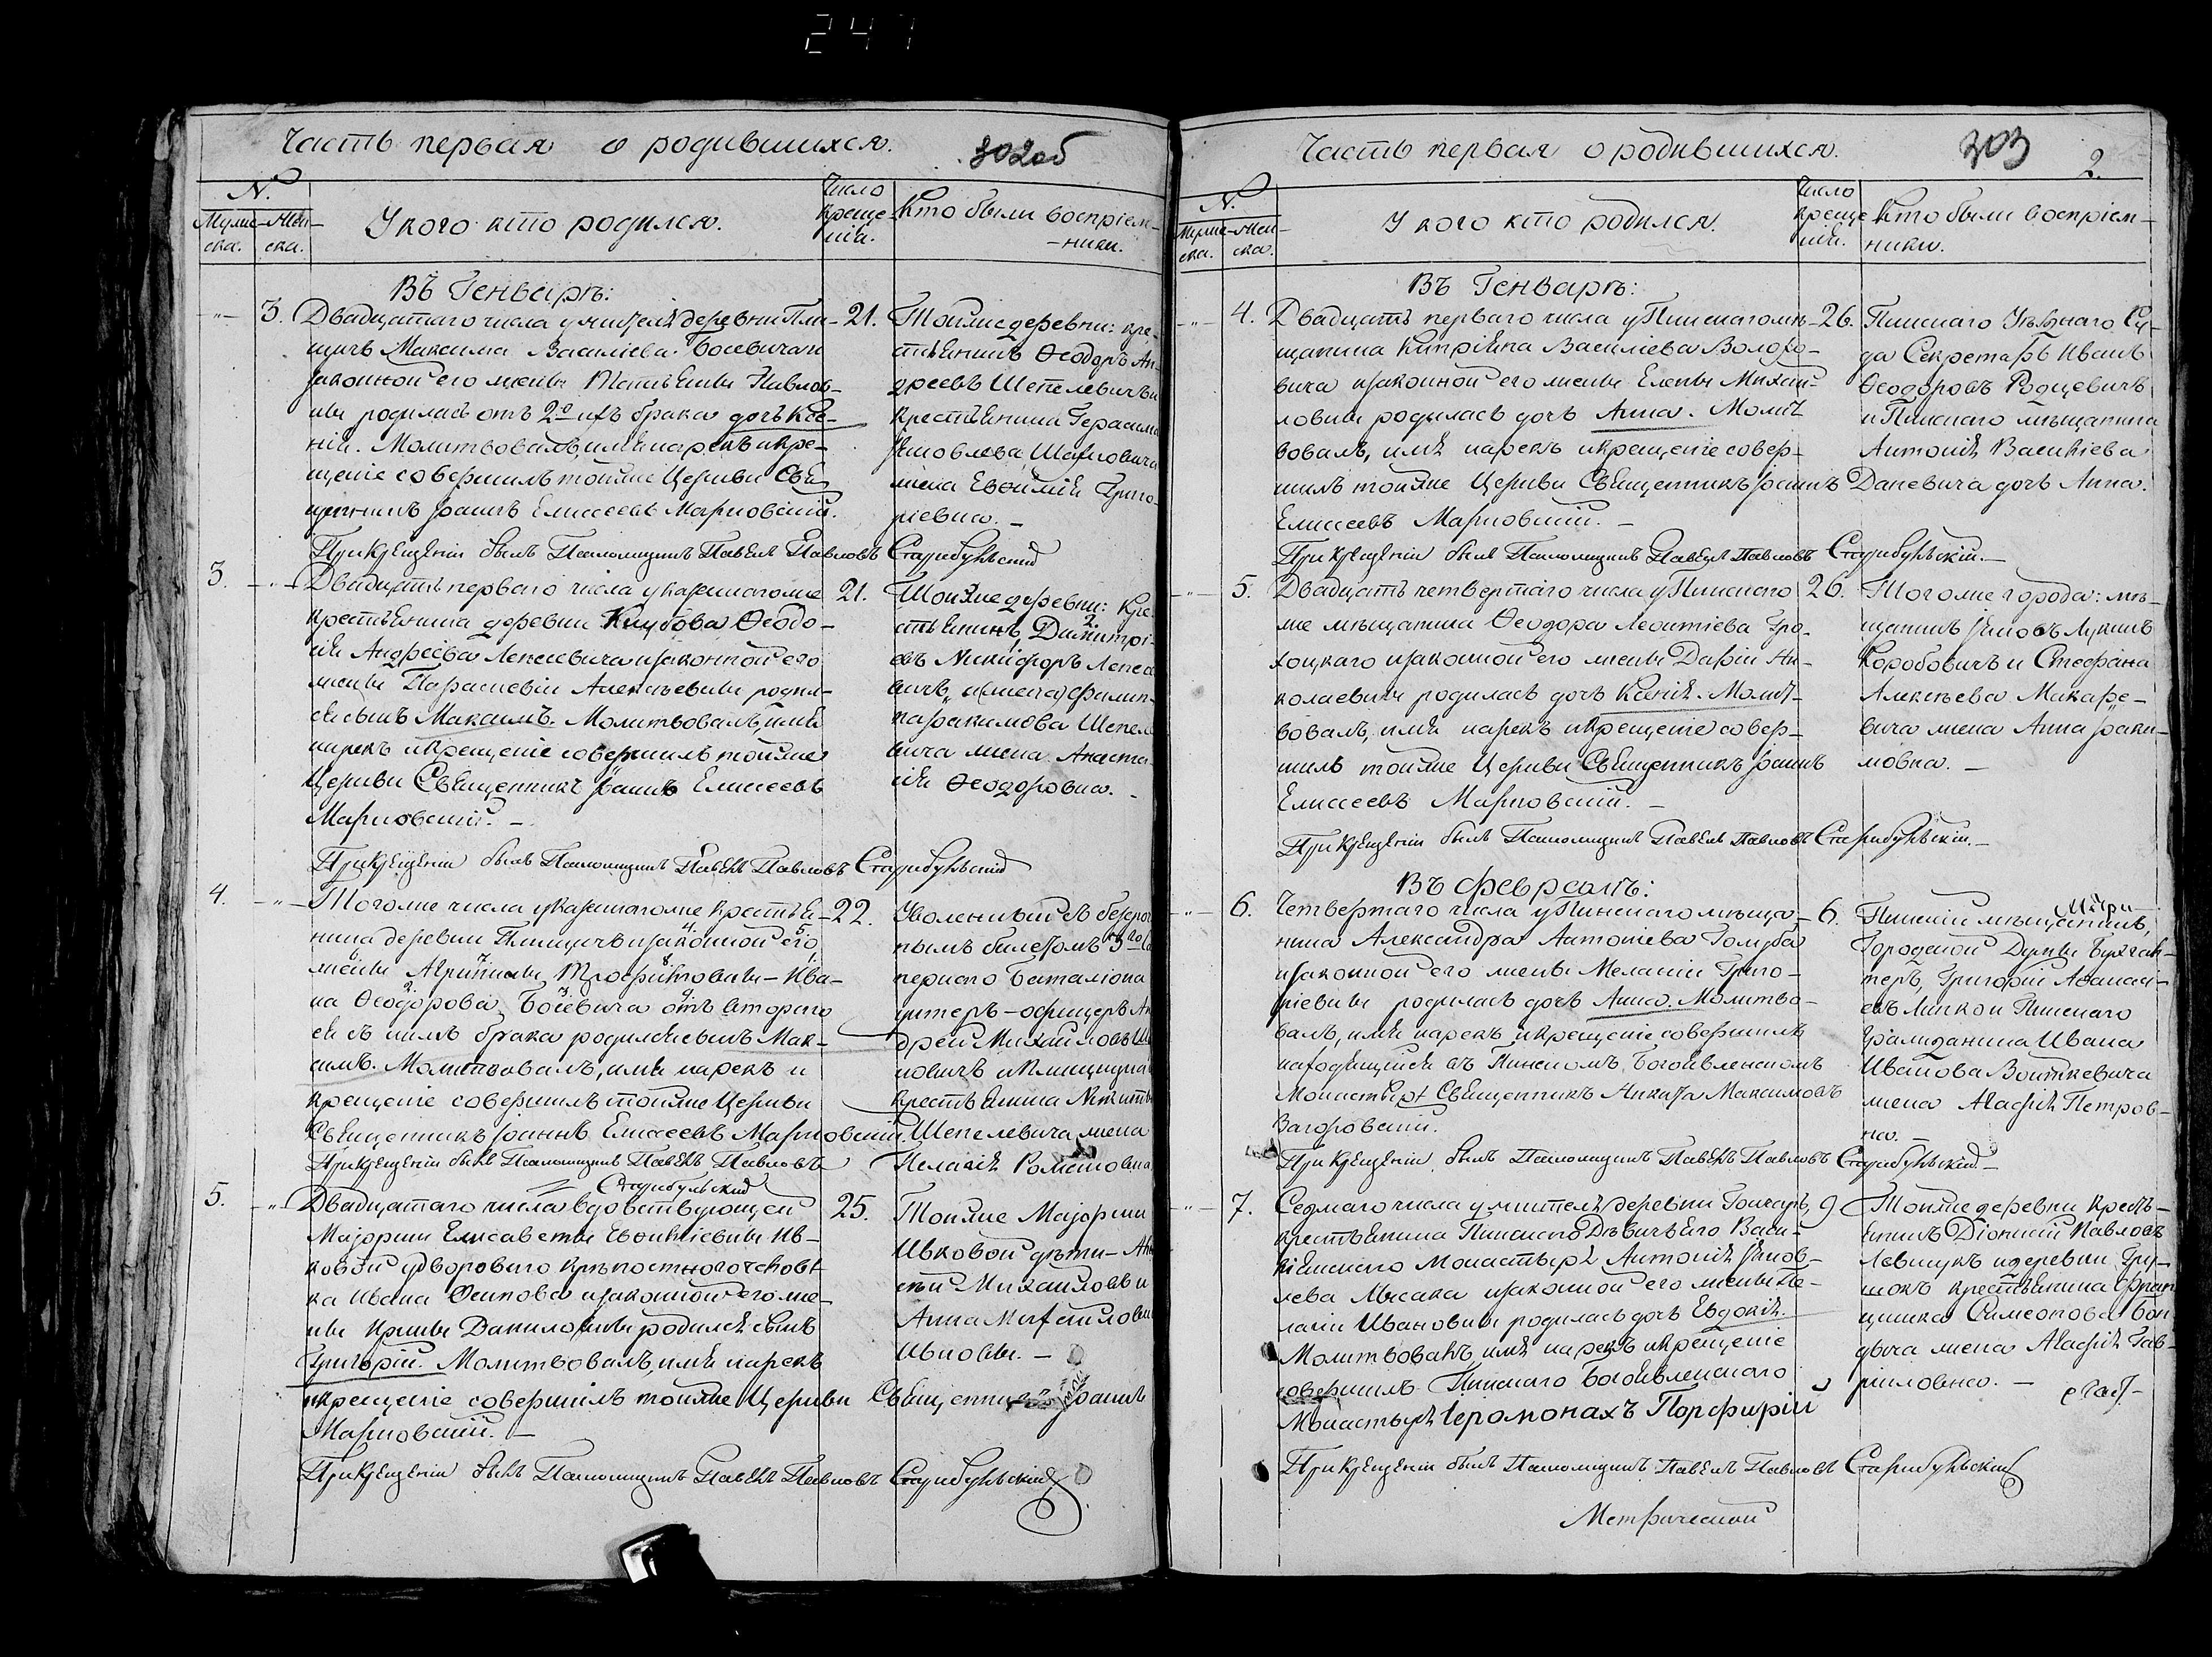 247
Часть первая о родившихся.
302об
N.
Муже-
ска.
Жен-
ска.
У кого кто родился.
Число
креще-
нія.
Кто были воспріем-
ники.
Въ Генварѣ:
3. Двадцатаго числа у жителя деревни Пли-
щичъ Максима Василіева Босевича и
законной его жены Татьяны Павлов-
ны родилась отъ 2го ихъ брака дочь Ксе-
нія. Молитвовалъ, имя нарекъ и кре-
щеніе совершилъ тойже Церкви Свя-
щенникъ Іоаннъ Елисеевъ Марковскій.
21. Тойже деревни: кре-
стьянинъ Ѳеодоръ Ан-
дреевъ Шепелевичъ и
крестьянина Герасима
Яковлева
жена Евѳимія Григо-
ріевна.
При крещеніи былъ Паломщикъ Павелъ Павловъ
3. Двадцать перваго числа у казеннагоже
крестьянина деревни Ѳеодо-
ія Андреева и законной его
жены Параскевіи Алексѣевны родил-
ся сынъ Максимъ. Молитвовалъ, имя
нарекъ и крещеніе совершилъ тойже
Церкви Священникъ Іоаннъ Елисеевъ
Марковскій.
21. Тойже деревни: Кре-
стьянинъ Димитрі-
евъ Никифоръ
и жена Филип-
па Іоакимова Шепеле-
вича жена Анаста-
ія Ѳеодоровна.
При крещеніи былъ Паломщикъ Павелъ Павловъ
4. Тогоже числа у казеннагоже крестья-
нина деревни Плищичъ и законной его
жены Агрипины Трофимовны Ива-
на Ѳеодорова Босевича отъ втораго
ея съ нимъ брака родился сынъ Мак-
симъ. Молитвовалъ, имя нарекъ и
крещеніе совершилъ тойже Церкви
Священникъ Іоаннъ Елисеевъ Марковскій.
22. Уволенный съ безсроч-
нымъ билетомъ 5го Са-
пернаго Баталіона
унтеръ-офицеръ Ан-
дрей Михайловъ
крестьянина Никиты
Шепелевича жена
Пелагія Романовна
При крещеніи былъ Паломщикъ Павелъ Павловъ
5. Двадцатаго числа вдовствующей
Маіорши Елисаветы Ив-
ковой у двороваго крѣпостнаго человѣ-
ка Ивана Осипова и законной его же-
ны Ирины Даниловны родился сынъ
Григорій. Молитвовалъ, имя нарекъ
и крещеніе совершилъ тойже Церкви Священникъ Іоаннъ
Марковскій.
25. Тойже Маіорши
Ивковой дѣти Але-
ксѣй Михайловъ и
Анна Михайловна
Ивковы.
При крещеніи былъ Паломщикъ Павелъ Павловъ
Часть первая о родившихся.
303
2.
N.
Муже-
ска.
Жен-
ска.
У кого кто родился.
Число
креще-
нія.
Кто были воспріем-
ники.
Въ Генварѣ:
4. Двадцать перваго числа у Пинскаго мѣ-
щанина Кипріяна Василіева Волохо-
вича и законной его жены Елены Михай-
ловны родилась дочь Анна. Молит-
вовалъ, имя нарекъ и крещеніе совер-
шилъ тойже Церкви Священникъ Іоаннъ
Елисеевъ Марковскій.
26. Пинскаго Уѣзднаго Су-
да Секретарь Иванъ
Ѳеодоровъ Родцевичъ
и Пинскаго мѣщанина
Антонія Василіева
Даневича дочь Анна.
При крещеніи былъ Паломщикъ Павелъ Павловъ
5. Двадцать четвертаго числа у Пинскаго
же мѣщанина Ѳеодора Леонтіева Гро-
хоцкаго и законной его жены Даріи Ни-
колаевны родилась дочь Ксенія. Молит-
вовалъ, имя нарекъ и крещеніе совер-
шилъ тойже Церкви Священникъ Іоаннъ
Елисеевъ Марковскій.
26. Тогоже города: мѣ-
щанинъ Яковъ Лукинъ
Коробовичъ и Стефана
Алексѣева Макаре-
вича жена Анна Іоаки-
мовна.
При крещеніи былъ Паломщикъ Павелъ Павловъ
Въ Февралѣ:
6. Четвертаго числа у Пинскаго мѣща-
нина Александра Антоніева Голуба
и законной его жены Меланіи Григо-
ріевны родилась дочь Анна. Молитво-
валъ, имя нарекъ и крещеніе совершилъ
находящійся въ Пинскомъ Богоявленскомъ
Монастырѣ Священникъ Никита Максимовъ
Загоровскій.
6. Пинскій мѣщанинъ,
Городской Думы Бухгал-
теръ, Григорій Аѳанась-
евъ и Пинскаго
гражданина Ивана
Иванова Войткевича
жена Агафія Петров-
на.
При крещеніи былъ Паломщикъ Павелъ Павловъ
7. Седмаго числа у жителя деревни Гончаръ,
крестьянина Пинскаго Дѣвичьяго Васи-
ліянскаго Монастыря Антонія Яков-
лева Мысака и законной его жены Пе-
лагіи Ивановны родилась дочь Евдокія.
Молитвовалъ, имя нарекъ и крещеніе
совершилъ Пинскаго Богоявленскаго
Монастыря Іеромонахъ Порфирій
9. Тойже деревни Кресть-
янинъ Діонисій Павловъ
Левчукъ и деревни
крестьянина Фран-
цишка Симеонова
жена Агафія Гав-
риловна.
При крещеніи былъ Паломщикъ Павелъ Павловъ
Метрической